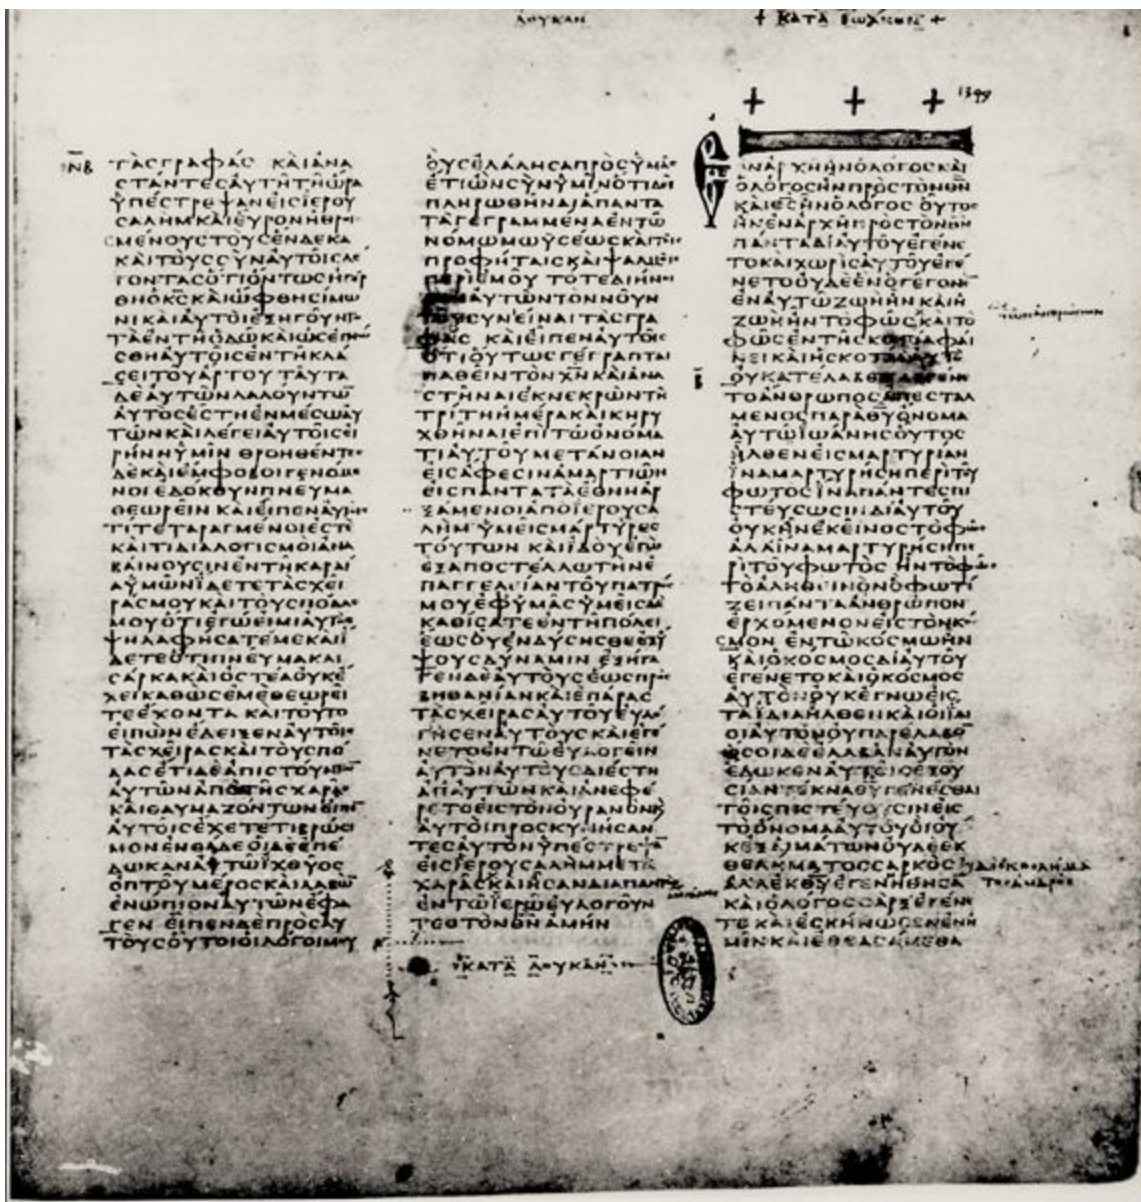 ΛΟΥΚΑΝ
+ ΚΑΤΑ ΙΩΑΝΝΗΝ +
1349
ΝΒ
ΤΑϹΓΡΑΦΑϹ ΚΑΙΑΝΑ
ϹΤΑΝΤΕϹΑΥΤΗΤΗΩΡΑ
ΥΠΕϹΤΡΕΨΑΝΕΙϹΙΕΡΟΥ
ϹΑΛΗΜΚΑΙΕΥΡΟΝΗΘΡΟΙ
ϹΜΕΝΟΥϹΤΟΥϹΕΝΔΕΚΑ
ΚΑΙΤΟΥϹϹΥΝΑΥΤΟΙϹΛΕ
ΓΟΝΤΑϹΟΤΙΟΝΤΩϹΗΓΕΡ
ΘΗΟΚϹΚΑΙΩΦΘΗϹΙΜΩ
ΝΙΚΑΙΑΥΤΟΙΕΞΗΓΟΥΝΤΟ
ΤΑΕΝΤΗΟΔΩΚΑΙΩϹΕΓΝΩ
ϹΘΗΑΥΤΟΙϹΕΝΤΗΚΛΑ
ϹΕΙΤΟΥΑΡΤΟΥ ΤΑΥΤΑ
ΔΕΑΥΤΩΝΛΑΛΟΥΝΤΩ̅
ΑΥΤΟϹΕϹΤΗΕΝΜΕϹΩΑΥ
ΤΩΝΚΑΙΛΕΓΕΙΑΥΤΟΙϹΕΙ
ΡΗΝΗΥΜΙΝ ΘΡΟΗΘΕΝΤΕϹ
ΔΕΚΑΙΕΜΦΟΒΟΙΓΕΝΟΜΕ
ΝΟΙΕΔΟΚΟΥΝΠΝΕΥΜΑ
ΘΕΩΡΕΙΝ ΚΑΙΕΙΠΕΝΑΥΤΟΙϹ
ΤΙΤΕΤΑΡΑΓΜΕΝΟΙΕϹΤΕ
ΚΑΙΤΙΔΙΑΛΟΓΙϹΜΟΙΑΝΑ
ΒΑΙΝΟΥϹΙΝΕΝΤΗΚΑΡΔΙΑ
ΥΜΩΝΙΔΕΤΕΤΑϹΧΕΙ
ΡΑϹΜΟΥΚΑΙΤΟΥϹΠΟΔΑϹ
ΜΟΥΟΤΙΕΓΩΕΙΜΙΑΥΤΟϹ
ΨΗΛΑΦΗϹΑΤΕΜΕΚΑΙΙ
ΔΕΤΕΟΤΙΠΝΕΥΜΑΚΑΙ
ϹΑΡΚΑΚΑΙΟϹΤΕΑΟΥΚΕ
ΧΕΙΚΑΘΩϹΕΜΕΘΕΩΡΕΙ
ΤΕΕΧΟΝΤΑ ΚΑΙΤΟΥΤΟ
ΕΙΠΩΝΕΔΕΙΞΕΝΑΥΤΟΙϹ
ΤΑϹΧΕΙΡΑϹΚΑΙΤΟΥϹΠΟ
ΔΑϹΕΤΙΔΕΑΠΙϹΤΟΥΝΤΩ̅
ΑΥΤΩΝΑΠΟΤΗϹΧΑΡΑϹ
ΚΑΙΘΑΥΜΑΖΟΝΤΩΝΕΙΠΕΝ
ΑΥΤΟΙϹΕΧΕΤΕΤΙΒΡΩϹΙ
ΜΟΝΕΝΘΑΔΕΟΙΔΕΕΠΕ
ΔΩΚΑΝΑΥΤΩΙΧΘΥΟϹ
ΟΠΤΟΥΜΕΡΟϹΚΑΙΛΑΒΩ̅
ΕΝΩΠΙΟΝΑΥΤΩΝΕΦΑ
ΓΕΝ ΕΙΠΕΝΔΕΠΡΟϹΑΥ
ΤΟΥϹΟΥΤΟΙΟΙΛΟΓΟΙΜΟΥ
ΟΥϹΕΛΑΛΗϹΑΠΡΟϹΥΜΑϹ
ΕΤΙΩΝϹΥΝΥΜΙΝΟΤΙΔΕΙ
ΠΛΗΡΩΘΗΝΑΙΑΠΑΝΤΑ
ΤΑΓΕΓΡΑΜΜΕΝΑΕΝΤΩ
ΝΟΜΩΜΩΥϹΕΩϹΚΑΙΤΟΙϹ
ΠΡΟΦΗΤΑΙϹΚΑΙΨΑΛΜΟΙϹ
ΠΕΡΙΕΜΟΥ ΤΟΤΕΔΙΗΝΟΙ
ΞΕΝΑΥΤΩΝΤΟΝΝΟΥΝ
ΤΟΥϹΥΝΕΙΝΑΙΤΑϹΓΡΑ
ΦΑϹ ΚΑΙΕΙΠΕΝΑΥΤΟΙϹ
ΟΤΙΟΥΤΩϹΓΕΓΡΑΠΤΑΙ
ΠΑΘΕΙΝΤΟΝΧ̅Ν̅ΚΑΙΑΝΑ
ϹΤΗΝΑΙΕΚΝΕΚΡΩΝΤΗ
ΤΡΙΤΗΗΜΕΡΑΚΑΙΚΗΡΥ
ΧΘΗΝΑΙΕΠΙΤΩΟΝΟΜΑ
ΤΙΑΥΤΟΥΜΕΤΑΝΟΙΑΝ
ΕΙϹΑΦΕϹΙΝΑΜΑΡΤΙΩΝ
ΕΙϹΠΑΝΤΑΤΑΕΘΝΗΑΡ
ΞΑΜΕΝΟΙΑΠΟΙΕΡΟΥϹΑ
ΛΗΜ ΥΜΕΙϹΜΑΡΤΥΡΕϹ
ΤΟΥΤΩΝ ΚΑΙΙΔΟΥΕΓΩ
ΕΞΑΠΟϹΤΕΛΛΩΤΗΝΕ
ΠΑΓΓΕΛΙΑΝΤΟΥΠΑΤΡΟϹ
ΜΟΥΕΦΥΜΑϹΥΜΕΙϹΔΕ
ΚΑΘΙϹΑΤΕΕΝΤΗΠΟΛΕΙ
ΕΩϹΟΥΕΝΔΥϹΗϹΘΕΕΞΥ
ΨΟΥϹΔΥΝΑΜΙΝ ΕΞΗΓΑ
ΓΕΝΔΕΑΥΤΟΥϹΕΩϹΠΡΟϹ
ΒΗΘΑΝΙΑΝΚΑΙΕΠΑΡΑϹ
ΤΑϹΧΕΙΡΑϹΑΥΤΟΥΕΥΛΟ
ΓΗϹΕΝΑΥΤΟΥϹΚΑΙΕΓΕ
ΝΕΤΟΕΝΤΩΕΥΛΟΓΕΙΝ
ΑΥΤΟΝΑΥΤΟΥϹΔΙΕϹΤΗ
ΑΠΑΥΤΩΝΚΑΙΑΝΕΦΕ
ΡΕΤΟΕΙϹΤΟΝΟΥΡΑΝΟΝΚ
ΑΥΤΟΙΠΡΟϹΚΥΝΗϹΑΝ
ΤΕϹΑΥΤΟΝΥΠΕϹΤΡΕΨΑ
ΕΙϹΙΕΡΟΥϹΑΛΗΜΜΕΤΑ
ΧΑΡΑϹΚΑΙΗϹΑΝΔΙΑΠΑΝΤΟϹ
ΕΝΤΩΙΕΡΩΕΥΛΟΓΟΥΝ
ΤΕϹΤΟΝΘ̅Ν̅ΑΜΗΝ
ΚΑΤΑ ΛΟΥΚΑΝ
ΕΝΑΡΧΗΗΝΟΛΟΓΟϹΚΑΙ
ΟΛΟΓΟϹΗΝΠΡΟϹΤΟΝΘ̅Ν̅
ΚΑΙΘ̅Ϲ̅ΗΝΟΛΟΓΟϹ ΟΥΤΟϹ
ΗΝΕΝΑΡΧΗΠΡΟϹΤΟΝΘ̅Ν̅
ΠΑΝΤΑΔΙΑΥΤΟΥΕΓΕΝΕ
ΤΟΚΑΙΧΩΡΙϹΑΥΤΟΥΕΓΕ
ΝΕΤΟΟΥΔΕΕΝΟΓΕΓΟΝΕ̅
ΕΝΑΥΤΩΖΩΗΗΝ ΚΑΙΗ
ΖΩΗΗΝΤΟΦΩϹ ΚΑΙΤΟ
ΤΩΝΑΝΘΡΩΠΩΝ
ΦΩϹΕΝΤΗϹΚΟΤΙΑΦΑΙ
ΝΕΙΚΑΙΗϹΚΟΤΙΑΑΥΤΟ
Β
ΟΥΚΑΤΕΛΑΒΕΝΕΓΕΝΕ
ΤΟΑΝΘΡΩΠΟϹΑΠΕϹΤΑΛ
ΜΕΝΟϹΠΑΡΑΘ̅Υ̅ΟΝΟΜΑ
ΑΥΤΩΙΩΑΝΗϹΟΥΤΟϹ
ΗΛΘΕΝΕΙϹΜΑΡΤΥΡΙΑΝ
ΙΝΑΜΑΡΤΥΡΗϹΗΠΕΡΙΤΟΥ
ΦΩΤΟϹΙΝΑΠΑΝΤΕϹΠΙ
ϹΤΕΥϹΩϹΙΝΔΙΑΥΤΟΥ
ΟΥΚΗΝΕΚΕΙΝΟϹΤΟΦΩϹ
ΑΛΛΙΝΑΜΑΡΤΥΡΗϹΗΠΕ
ΡΙΤΟΥΦΩΤΟϹ ΗΝΤΟΦΩϹ
ΤΟΑΛΗΘΕΙΝΟΝΟΦΩΤΙ
ΖΕΙΠΑΝΤΑΑΝΘΡΩΠΟΝ
ΕΡΧΟΜΕΝΟΝΕΙϹΤΟΝΚΟ
ϹΜΟΝ ΕΝΤΩΚΟϹΜΩΗΝ
ΚΑΙΟΚΟϹΜΟϹΔΙΑΥΤΟΥ
ΕΓΕΝΕΤΟΚΑΙΟΚΟϹΜΟϹ
ΑΥΤΟΝΟΥΚΕΓΝΩΕΙϹ
ΤΑΙΔΙΑΗΛΘΕΝΚΑΙΟΙΙΔΙ
ΟΙΑΥΤΟΝΟΥΠΑΡΕΛΑΒΟ̅
ΟϹΟΙΔΕΕΛΑΒΑΝΑΥΤΟΝ
ΕΔΩΚΕΝΑΥΤΟΙϹΕΞΟΥ
ϹΙΑΝΤΕΚΝΑΘ̅Υ̅ΓΕΝΕϹΘΑΙ
ΤΟΙϹΠΙϹΤΕΥΟΥϹΙΝΕΙϹ
ΤΟΟΝΟΜΑΑΥΤΟΥΟΙΟΥ
ΚΕΞΑΙΜΑΤΩΝΟΥΔΕΕΚ
ΘΕΛΗΜΑΤΟϹϹΑΡΚΟϹ
ΟΥΔΕΕΚΘΕΛΗΜΑ
ΤΟϹΑΝΔΡΟϹ
ΑΛΛΕΚΘ̅Υ̅ΕΓΕΝΗΘΗϹΑ̅
ΚΑΙΟΛΟΓΟϹϹΑΡΞΕΓΕΝΕ
ΤΟ ΚΑΙΕϹΚΗΝΩϹΕΝΕΝΗ
ΜΙΝΚΑΙΕΘΕΑϹΑΜΕΘΑ